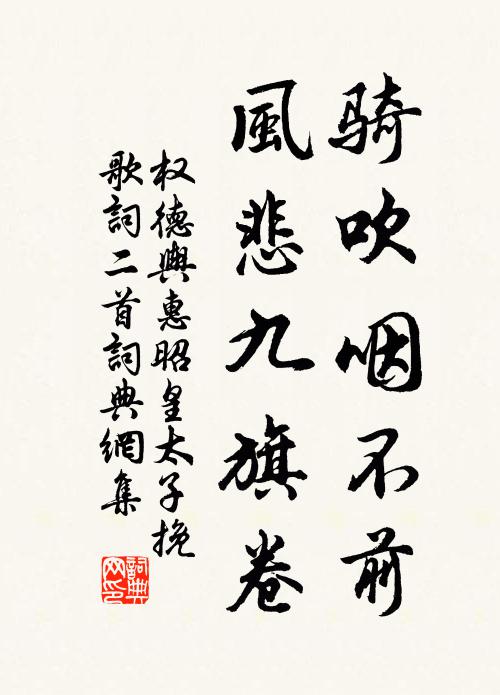 骑吹咽不前
風悲九旗卷
权德輿惠昭皇太子挽
歌詞二首詞典網集
詞典网印